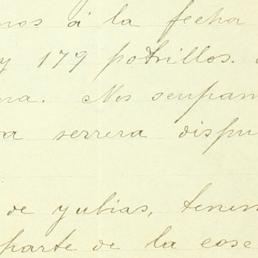 nos á la fecha
y 179 potrillos.
na. Nos ocupam
a serrera dispu
de yubias, tenem
parte de la cose